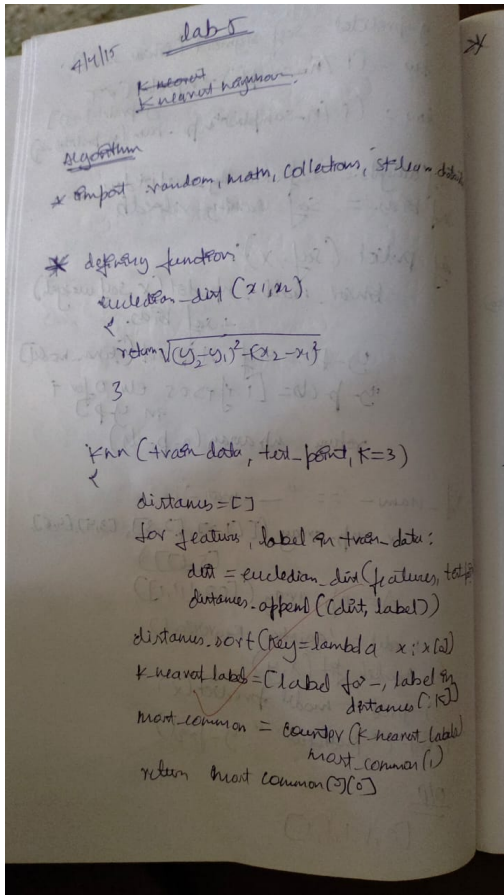 4/4/15
Lab-5
K nearest
K nearest neighbour
Algorithm
* import random, math, collections,
* defining function
eucledian_dist (x1, x2)
{
return √(y₂-y₁)²-(x₂-x₁)²
}
Knn (train_data, test_point, K=3)
{
distances = []
for features, label in train_data:
dist = eucledian_dist (features, test
distances.append((dist, label))
distances.sort (Key=lambda x: x[0])
K_nearest_labels = [label for _, label in
distances [:K]]
most_common = counter (K_nearest_labels)
most_common (1)
return most common [0][0]